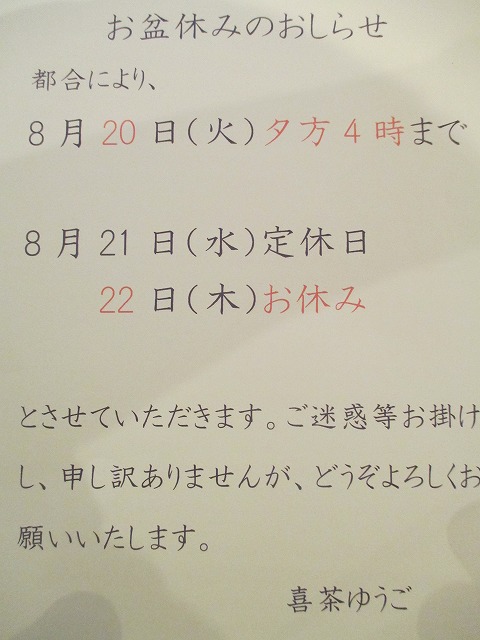 お盆休みのおしらせ
都合により、
8月20日(火)夕方4時まで
8月21日(水)定休日
22日(木)お休み
とさせていただきます。ご迷惑等お掛け
し、申し訳ありませんが、どうぞよろしくお
願いいたします。
喜茶ゆうご